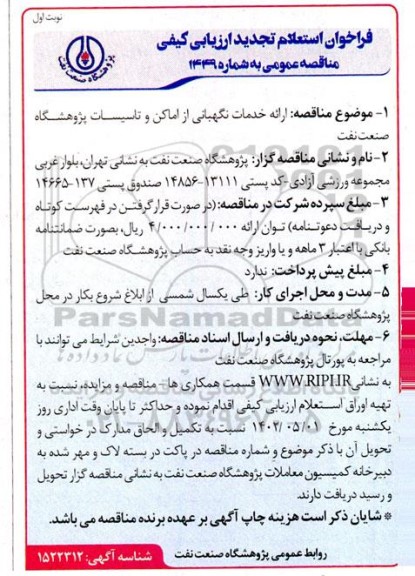 نوبت اول
فراخوان استعلام تجدید ارزیابی کیفی
مناقصه عمومی به شماره ۱۴۴۹
پژوهشگاه صنعت نفت
۱- موضوع مناقصه: ارائه خدمات نگهبانی از اماکن و تاسیسات پژوهشگاه
صنعت نفت
۲- نام و نشانی مناقصه گزار: پژوهشگاه صنعت نفت به نشانی تهران، بلوار غربی
مجموعه ورزشی آزادی-کد پستی ۱۳۱۱۱-۱۴۸۵۶ صندوق پستی ۱۳۷-۱۴۶۶۵
۳- مبلغ سپرده شرکت در مناقصه: (در صورت قرار گرفتن در فهرست کوتاه
و دریافت دعوتنامه) توان ارائه ۴/۰۰۰/۰۰۰/۰۰۰ ریال، بصورت ضمانتنامه
بانکی با اعتبار ۳ ماهه و یا واریز وجه نقد به حساب پژوهشگاه صنعت نفت
۴- مبلغ پیش پرداخت: ندارد
۵- مدت و محل اجرای کار: طی یکسال شمسی از ابلاغ شروع بکار در محل
پژوهشگاه صنعت نفت
۶- مهلت، نحوه دریافت و ارسال اسناد مناقصه: واجدین شرایط می توانند با
مراجعه به پورتال پژوهشگاه صنعت نفت
به نشانی WWW.RIPI.IR قسمت همکاری ها - مناقصه و مزایده، نسبت به
تهیه اوراق استعلام ارزیابی کیفی اقدام نموده و حداکثر تا پایان وقت اداری روز
یکشنبه مورخ ۱۴۰۲/۰۵/۰۱ نسبت به تکمیل و الحاق مدارک در خواستی و
تحویل آن با ذکر موضوع و شماره مناقصه در پاکت در بسته لاک و مهر شده به
دبیرخانه کمیسیون معاملات پژوهشگاه صنعت نفت به نشانی مناقصه گزار تحویل
و رسید دریافت دارند.
* شایان ذکر است هزینه چاپ آگهی بر عهده برنده مناقصه می باشد.
روابط عمومی پژوهشگاه صنعت نفت
شناسه آگهی: ۱۵۲۲۳۱۲
ParsNamadData